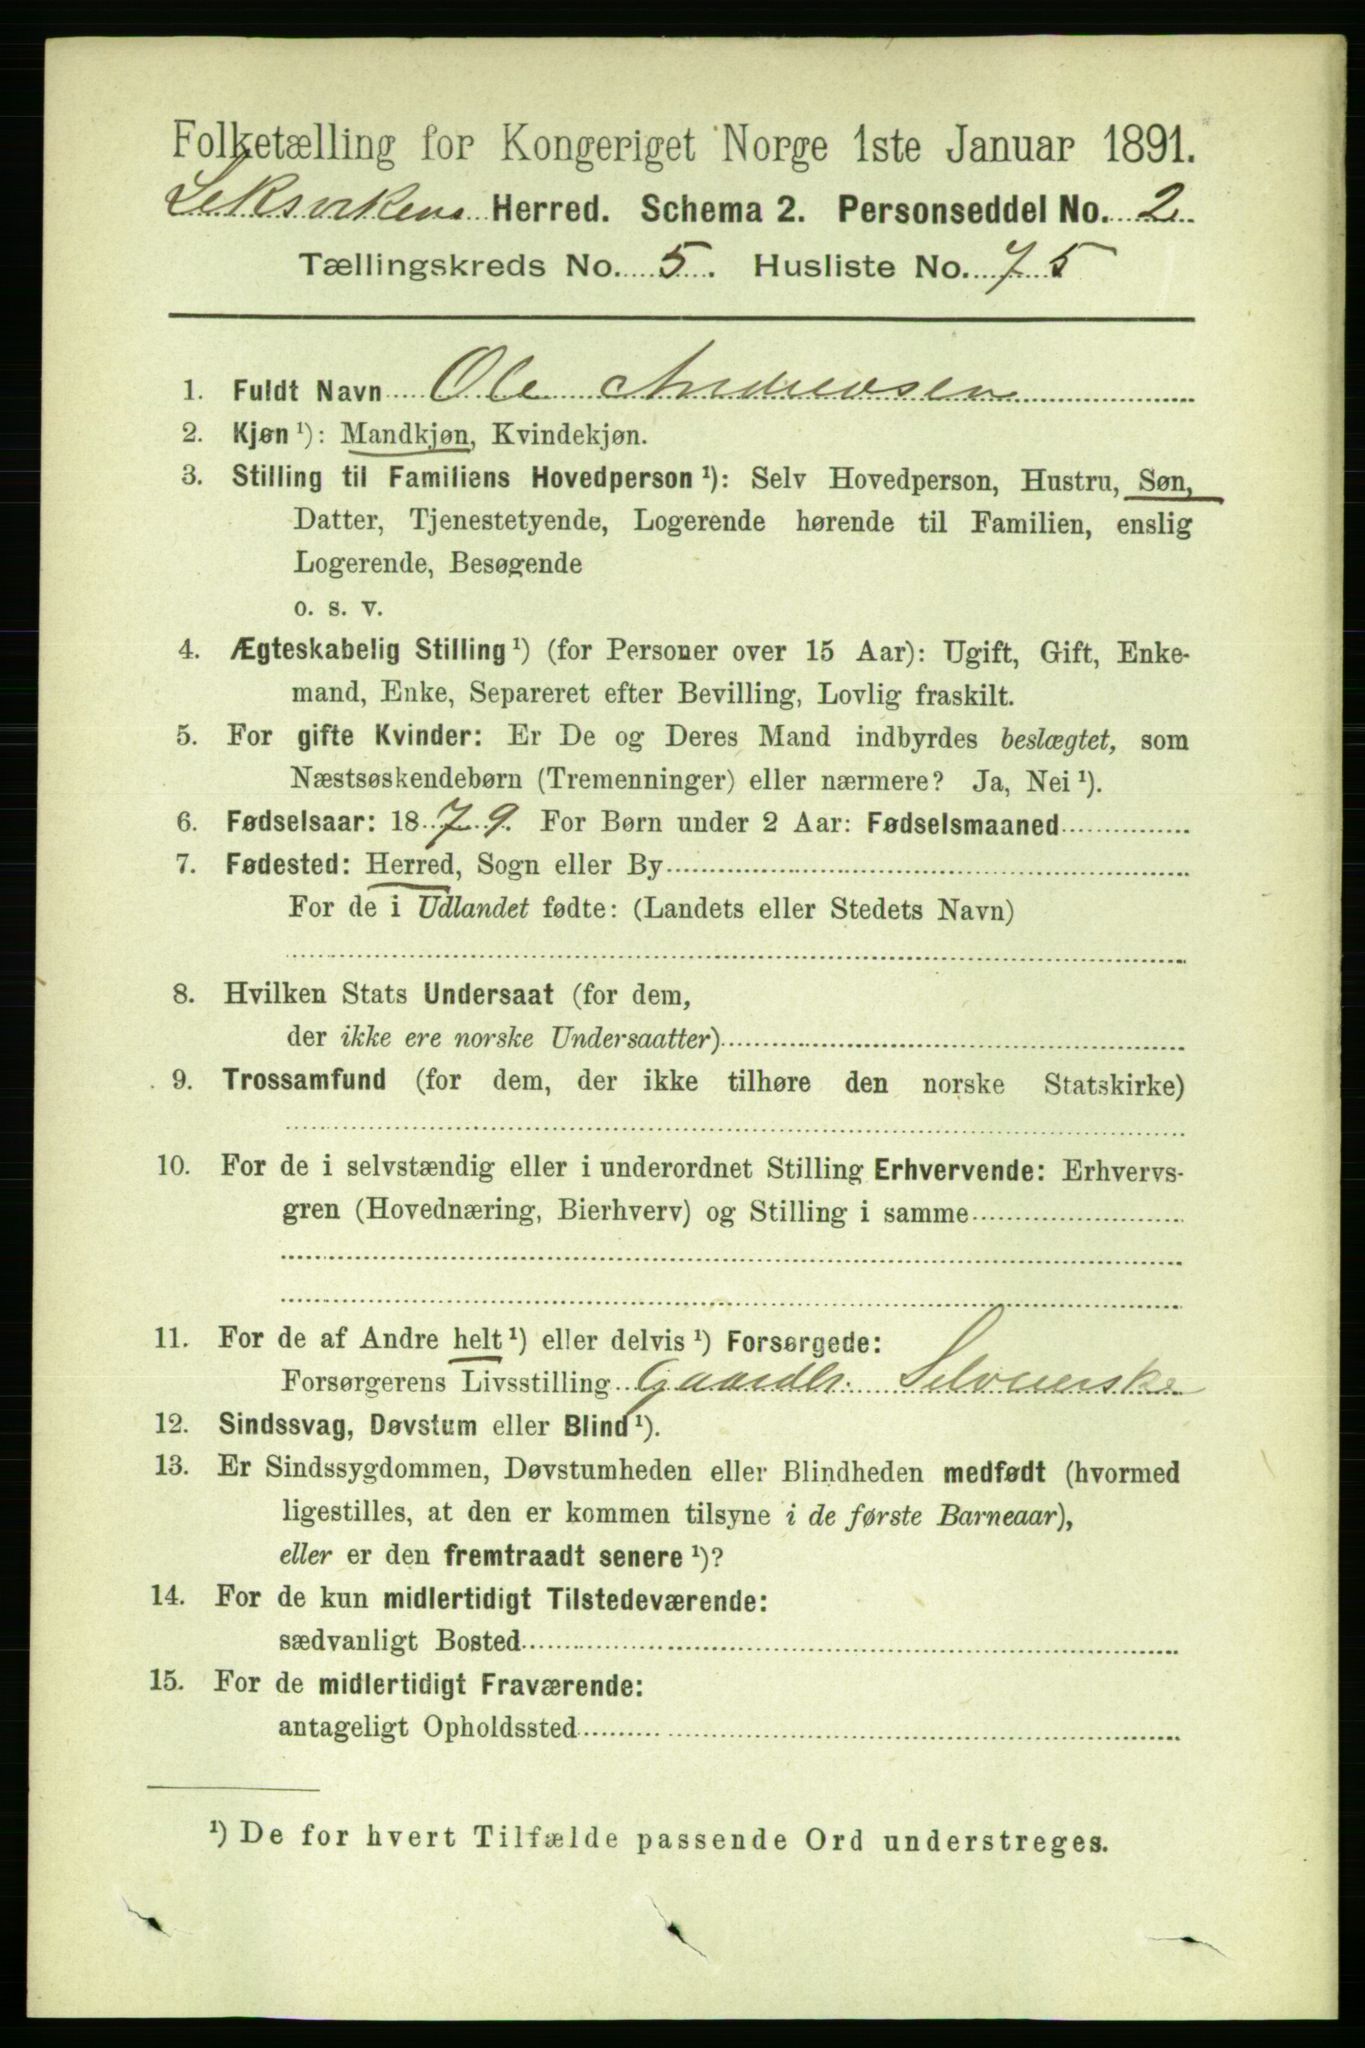 Folketælling for Kongeriget Norge 1ste Januar 1891.
Leksvikens Herred. Schema 2. Personseddel No. 2
Tællingskreds No. 5. Husliste No. 75
1. Fuldt Navn Ole Andreasen
2. Kjøn ¹): Mandkjøn, Kvindekjøn.
3. Stilling til Familiens Hovedperson ¹): Selv Hovedperson, Hustru, Søn,
Datter, Tjenestetyende, Logerende hørende til Familien, enslig
Logerende, Besøgende
o. s. v.
4. Ægteskabelig Stilling ¹) (for Personer over 15 Aar): Ugift, Gift, Enke-
mand, Enke, Separeret efter Bevilling, Lovlig fraskilt.
5. For gifte Kvinder: Er De og Deres Mand indbyrdes beslægtet, som
Næstsøskendebørn (Tremenninger) eller nærmere? Ja, Nei ¹).
6. Fødselsaar: 1879. For Børn under 2 Aar: Fødselsmaaned
7. Fødested: Herred, Sogn eller By
For de i Udlandet fødte: (Landets eller Stedets Navn)
8. Hvilken Stats Undersaat (for dem,
der ikke ere norske Undersaatter)
9. Trossamfund (for dem, der ikke tilhøre den norske Statskirke)
10. For de i selvstændig eller i underordnet Stilling Erhvervende: Erhvervs-
gren (Hovednæring, Bierhverv) og Stilling i samme
11. For de af Andre helt ¹) eller delvis ¹) Forsørgede:
Forsørgerens Livsstilling Gaardbr. Selveierske
12. Sindssvag, Døvstum eller Blind ¹).
13. Er Sindssygdommen, Døvstumheden eller Blindheden medfødt (hvormed
ligestilles, at den er kommen tilsyne i de første Barneaar),
eller er den fremtraadt senere ¹)?
14. For de kun midlertidigt Tilstedeværende:
sædvanligt Bosted
15. For de midlertidigt Fraværende:
antageligt Opholdssted
¹) De for hvert Tilfælde passende Ord understreges.